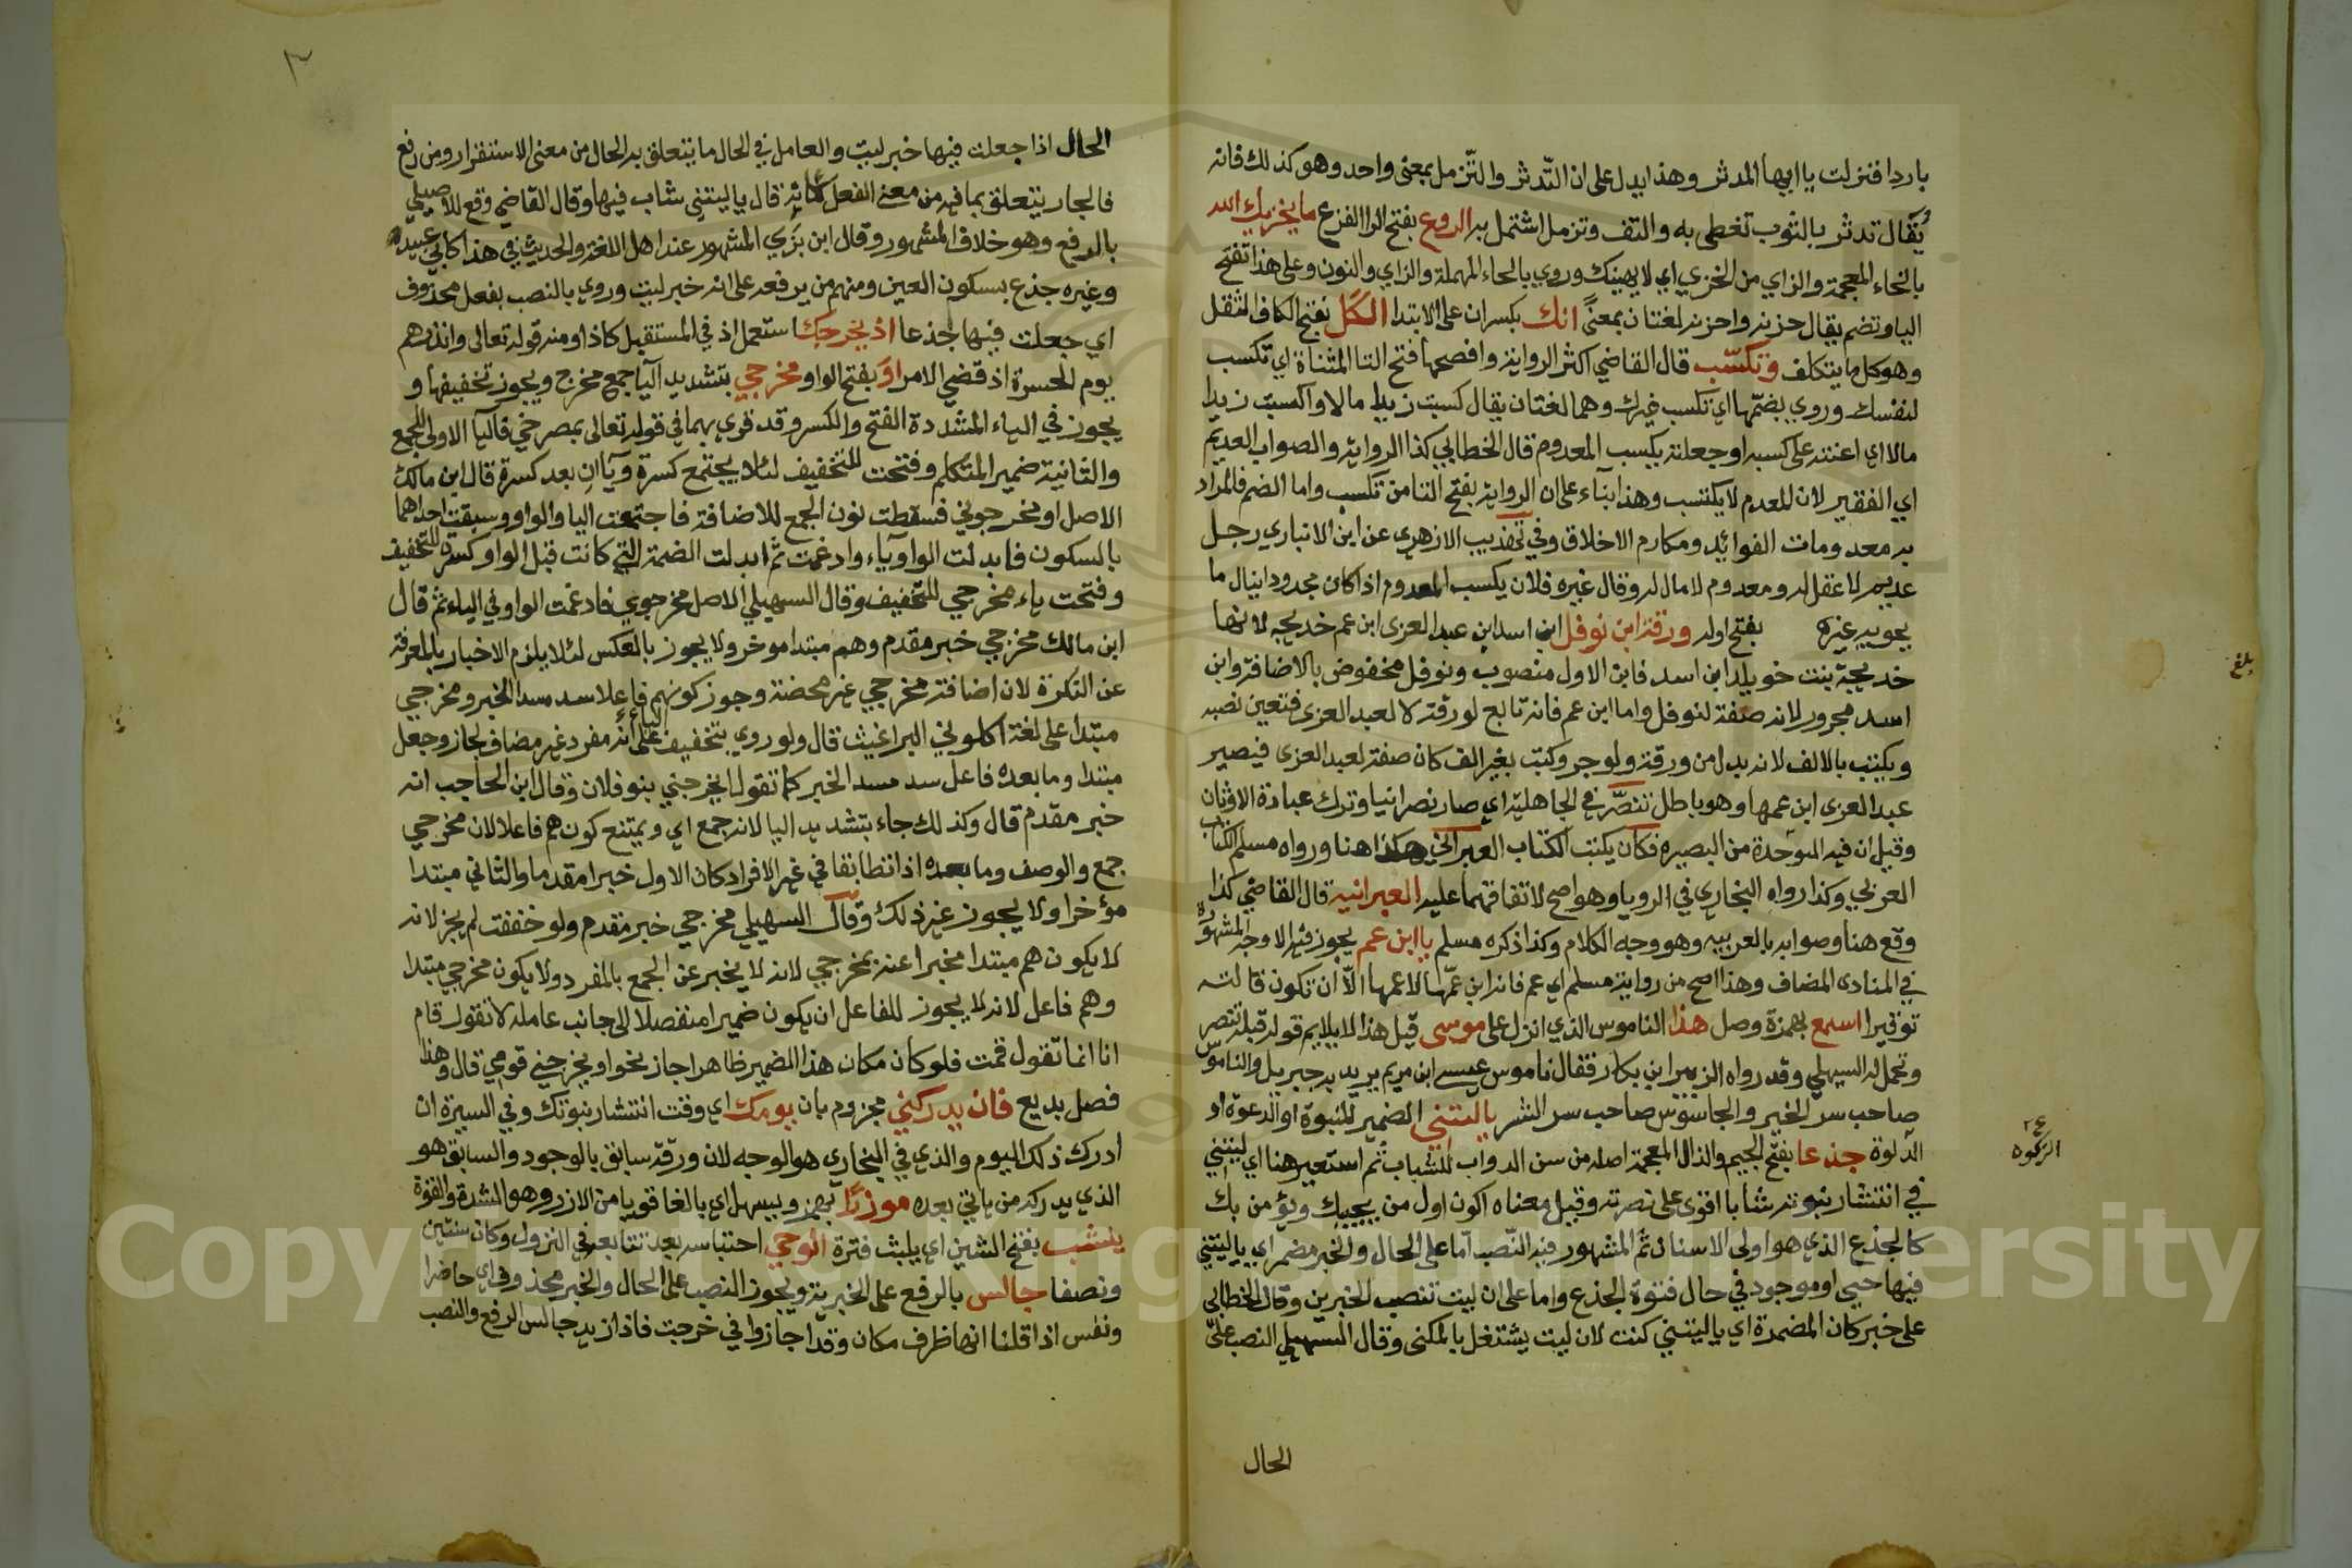 باردا فنزلت يا ايها المدثر وهذا يدل على ان التدثر والتزمل بمعنى واحد وهو كذلك فانه
يُقال تدثر بالثوب تغطى به والتف وتزمل اشتمل به الروع بفتح الرا الفزع ما يخزيك الله
بالخاء المعجمة والزاي من الخزي اي لا يهينك وروي بالحاء المهملة والزاي والنون وعلى هذا تفتح
اليا وتضم يقال حزنه واحزنه لغتان بمعنًى انك بكسر ان على الابتدا الكَل بفتح الكاف الثقل
وهو كل ما يتكلف وتكسب قال القاضي اكثر الرواية وافصحها فتح التا المثناة اي تكسب
لنفسك وروي بضمها اي تكسب غيرك وهما لغتان يقال كسبت زيدا مالا واكسبت زيدا
مالا اي اعنته على كسبه او جعلته يكسب المعدوم قال الخطابي كذا الرواية والصواب العديم
اي الفقير لان المعدم لا يكتسب وهذا بناء على ان الرواية بفتح التا من تكسب واما الضم فالمراد
به معدومات الفوائد ومكارم الاخلاق وفي تهذيب الازهري عن ابن الانباري رجل
عديم لا عقل له ومعدوم لا مال له وقال غيره فلان يكسب المعدوم اذا كان مجدودا ينال ما
يجويه غيره بفتح اوله ورقة ابن نوفل ابن اسد ابن عبد العزى ابن عم خديجة لانها
خديجة بنت خويلد ابن اسد فابن الاول منصوب ونوفل مخفوض بالاضافة وابن
اسد مجرور لانه صفة لنوفل واما ابن عم فانه تابع لورقة لا لعبد العزى فتعين نصبه
ويكتب بالالف لانه بدل من ورقة ولو جر وكتب بغير الف كان صفة لعبد العزى فيصير
عبد العزى ابن عمها وهو باطل تنصّر في الجاهلية اي صار نصرانيا وترك عبادة الاوثان
وقيل ان فيه الموحدة من البصيرة فكان يكتب الكتاب العبراني هكذا هنا ورواه مسلم الكتاب
العربي وكذا رواه البخاري في الرويا وهو اصح لاتفاقهما عليه العبرانية قال القاضي كذا
وقع هنا وصوابه بالعربيه وهو وجه الكلام وكذا ذكره مسلم يا ابن عم يجوز فيه الاوجه المشهورة
في المنادى المضاف وهذا اصح من رواية مسلم اي عم فانه ابن عمّها لا عمها الّا ان تكون قالته
توقيرا اسمع بهمزة وصل هذا الناموس الذي انزل على موسى قيل هذا لا يلايم قوله قبله تنصر
وتحمل له السهيلي وقد رواه الزبير ابن بكار فقال ناموس عيسى ابن مريم يريد به جبريل والناموس
صاحب سر الخير والجاسوس صاحب سر الشر يا ليتني الضمير للنبوة او الدعوة او
الدلوة جذعا بفتح الجيم والذال المعجمة اصله من سن الدواب للشباب ثم استعير هنا اي ليتني
في انتشار نبوته شابا اقوى على نصرته وقيل معناه اكون اول من يجيبك ويؤمن بك
كالجذع الذي هو اولى الاسنان ثم المشهور فيه النصب اما على الحال والخبر مضمر اي يا ليتني
فيها حيي او موجود في حال فتوة الجذع واما على ان ليت تنصب الخبرين وقال الخطابي
على خبر كان المضمرة اي يا ليتني كنت لان ليت يشتغل بالمكنى وقال السهيلي النصب على
الحال
بلغ
الزكوه
٣
الحال اذا جعلت فيها خبر ليت والعامل في الحال ما يتعلق به الحال من معنى الاستقرار ومن رفع
فالجار يتعلق بما فيه من معنى الفعل كانه قال يا ليتني شاب فيها وقال القاضي وقع للاصيلي
بالرفع وهو خلاف المشهور وقال ابن بَرّي المشهور عند اهل اللغة والحديث في هذا كابي عبيد
وغيره جذع بسكون العين ومنهم من يرفعه على انه خبر ليت وروي بالنصب بفعل محذوف
اي جعلت فيها جذعا اذ يخرجك استعمل اذ في المستقبل كاذا ومنه قوله تعالى وانذرهم
يوم الحسرة اذ قضي الامر اوَ بفتح الواو مخرجي بتشديد اليا جمع مخرج ويجوز تخفيفها و
يجوز في الياء المشددة الفتح والكسر وقد قري بهما في قوله تعالى بمصرخي فاليا الاولى للجمع
والثانية ضمير المتكلم وفتحت للتخفيف لئلا يجتمع كسرة ويآان بعد كسرة قال ابن مالك
الاصل او مخرجوني فسقطت نون الجمع للاضافة فاجتمعت اليا والواو وسبقت احداهما
بالسكون فابدلت الواو ياء وادغمت ثم ابدلت الضمة التي كانت قبل الواو كسرة للتخفيف
وفتحت ياء مخرجي للتخفيف وقال السهيلي الاصل مخرجوي فادغمت الواو في الياء ثم قال
ابن مالك مخرجي خبر مقدم وهم مبتدا موخر ولا يجوز بالعكس لئلا يلزم الاخبار بالمعرفة
عن النكرة لان اضافة مخرجي غير محضة وجوز كونهم فاعلا سد مسد الخبر ومخرجي
مبتدا على لغة اكلوني البراغيث قال ولو روي بتخفيف اليا على أنه مفرد غير مضاف لجاز وجعل
مبتدا وما بعده فاعل سد مسد الخبر كما تقول ايخرجني بنو فلان وقال ابن الحاجب انه
خبر مقدم قال وكذلك جاء بتشديد اليا لانه جمع اي ويمتنع كون هم فاعلا لان مخرجي
جمع والوصف وما بعده اذا تطابقا في غير الافراد كان الاول خبرا مقدما والثاني مبتدا
مؤخرا ولا يجوز غير ذلك وقال السهيلي مخرجي خبر مقدم ولو خففت لم يجز لانه
لا يكون هم مبتدا مخبرا عنه بمخرجي لانه لا يخبر عن الجمع بالمفرد ولا يكون مخرجي مبتدا
وهم فاعل لانه لا يجوز للفاعل ان يكون ضميرا منفصلا الى جانب عامله لا تقول قام
انا انما تقول قمت فلو كان مكان هذا المضمير ظاهرا جاز نحو اويخرجني قومي قال وهذا
فصل بديع فان يدركني مجزوم بان يومك اي وقت انتشار نبوتك وفي السيرة ان
ادرك ذلك اليوم والذي في البخاري هو الوجه لان ورقة سابق بالوجود والسابق هو
الذي يدركه من ياتي بعده موزرًا بهمز ويسهل اي بالغا قويا من الازر وهو الشدة والقوة
ينشب بفتح الشين اي يلبث فترة الوحي احتباسه بعد تتابعه في النزول وكان سنتين
ونصفا جالس بالرفع على الخبرية ويجوز النصب على الحال والخبر محذوف اي حاضرا
ونفس اذا قلنا انها ظرف مكان وقد اجازوا في خرجت فاذا زيد جالس الرفع والنصب
Copyright © King Saud University